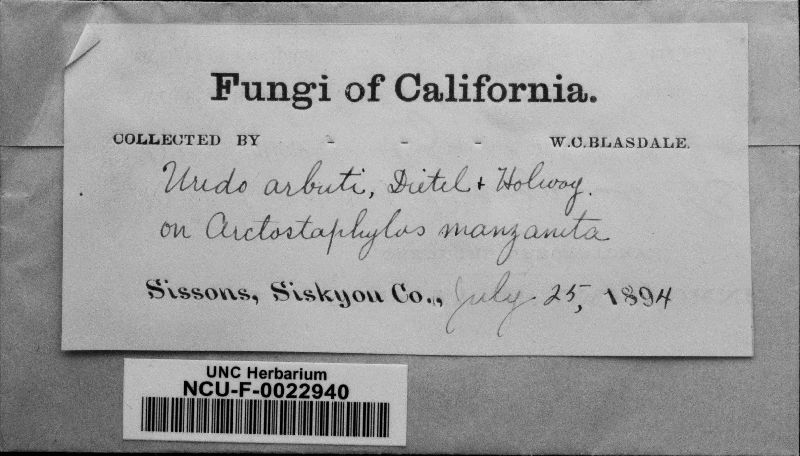 Fungi of California.
COLLECTED BY - - - W.C.BLASDALE.
Uredo arbuti, Dietel & Holway.
on Arctostaphylos manzanita
Sissons, Siskyou Co., July 25, 1894
UNC Herbarium
NCU-F-0022940